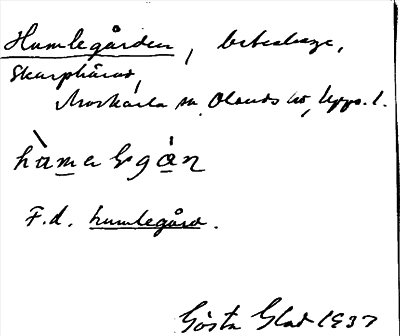 Humlegården, beteshage,
Skarphärad,
Morkarla sn, Olands hd, Upps. l.
hàmelgȧn
F.d. humlegård.
Gösta Glad 1937